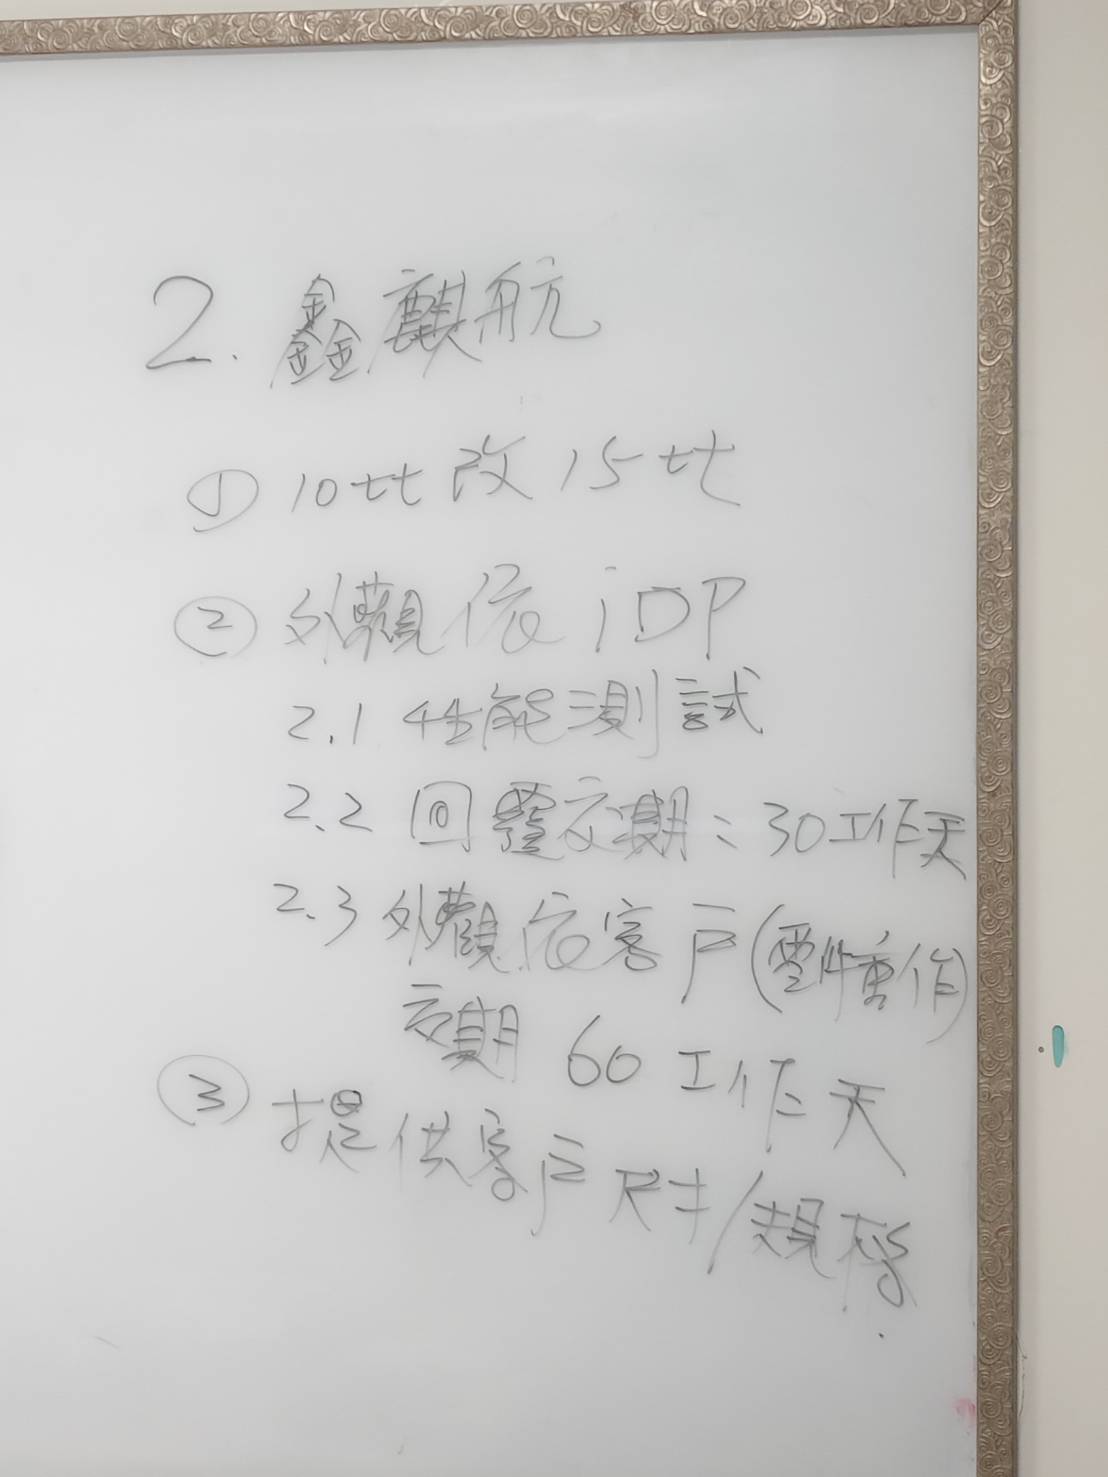 2. 鑫麒航
① 10吋改 15吋
② 外觀依 iDP
2.1 性能測試
2.2 回覆交期: 30工作天
2.3 外觀依客戶(零件重作)
交期 60 工作天
③ 提供客戶尺寸/規格.